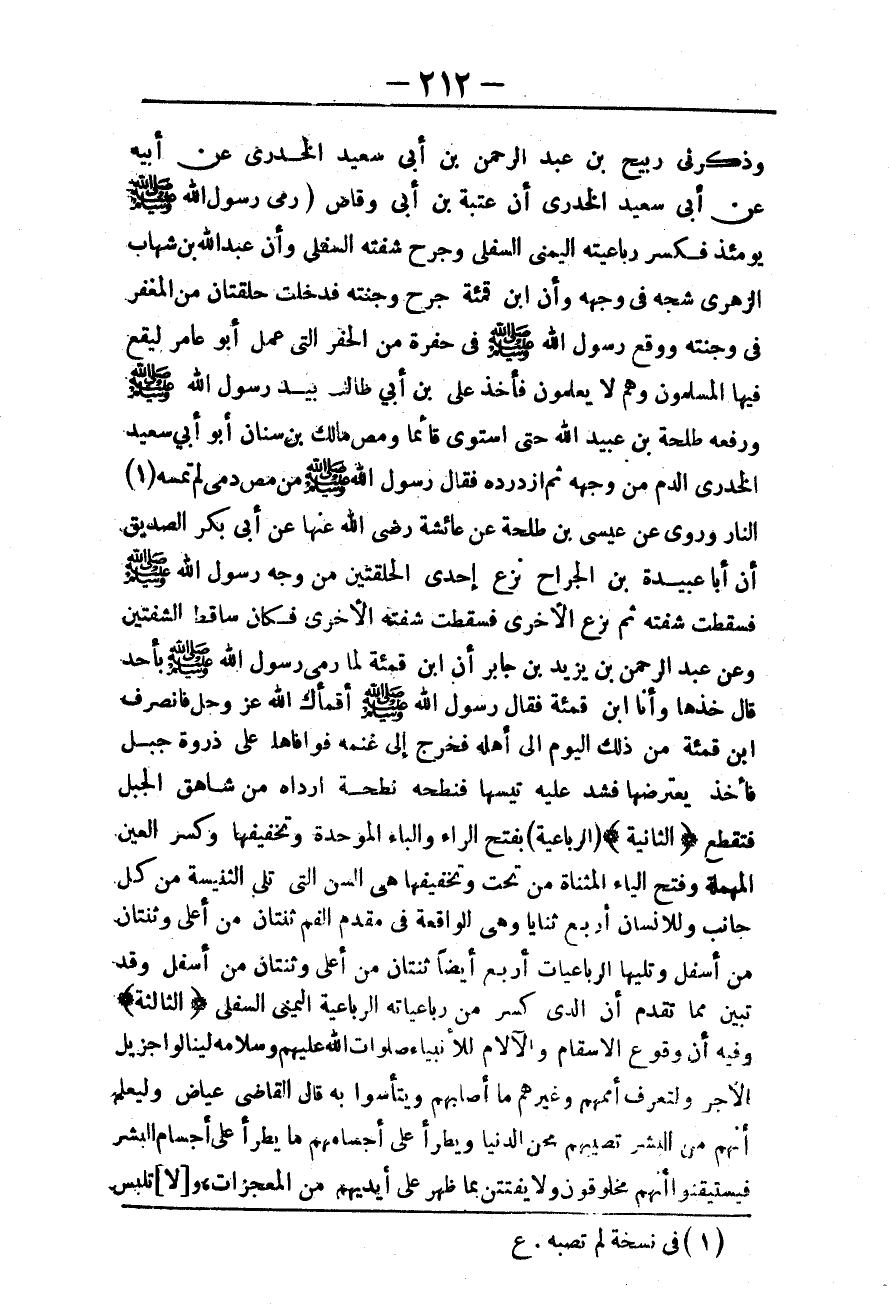 — ٢١٢ —
وذكر لى ربيح بن عبد الرحمن بن أبى سعيد الخدرى عن أبيه
عن أبى سعيد الخدرى أن عتبة بن أبى وقاص ( رمى رسول الله ﷺ
يومئذ فكسر رباعيته اليمنى السفلى وجرح شفته السفلى وأن عبدالله بن شهاب
الزهرى شجه فى وجهه وأن ابن قمئة جرح وجنته فدخلت حلقتان من المغفر
فى وجنته ووقع رسول الله ﷺ فى حفرة من الحفر التى عمل أبو عامر ليقع
فيها المسلمون وهم لا يعلمون فأخذ على بن أبي طالب بيد رسول الله ﷺ
ورفعه طلحة بن عبيد الله حتى استوى قائما ومص مالك بن سنان أبو أبي سعيد
الخدرى الدم من وجهه ثم ازدرده فقال رسول الله ﷺ من مص دمى لم تمسه (١)
النار وروى عن عيسى بن طلحة عن عائشة رضى الله عنها عن أبى بكر الصديق
أن أبا عبيدة بن الجراح نزع إحدى الحلقتين من وجه رسول الله ﷺ
فسقطت شفته ثم نزع الأخرى فسقطت شفته الأخرى فكان ساقط الشفتين
وعن عبد الرحمن بن يزيد بن جابر أن ابن قمئة لما رمى رسول الله ﷺ بأحد
قال خذها وأنا ابن قمئة فقال رسول الله ﷺ أقمأك الله عز وجل فانصرف
ابن قمئة من ذلك اليوم الى أهله فخرج إلى غنمه فوافاها على ذروة جبل
فأخذ يعترضها فشد عليه تيسها فنطحه نطحة ارداه من شاهق الجبل
فتقطع ﴿ الثانية ﴾ (الرباعية) بفتح الراء والباء الموحدة وتخفيفها وكسر العين
المهملة وفتح الياء المثناة من تحت وتخفيفها هى السن التى تلى الثنيسة من كل
جانب وللانسان أربع ثنايا وهى الواقعة فى مقدم الفم ثنتان من أعلى وثنتان
من أسفل وتليها الرباعيات أربع أيضاً ثنتان من أعلى وثنتان من أسفل وقد
تبين مما تقدم أن الذى كسر من رباعياته الرباعية اليمنى السفلى ﴿ الثالثة ﴾
وفيه أن وقوع الاسقام والآلام للأنبياء صلوات الله عليهم وسلامه لينالوا جزيل
الأجر ولتعرف أممهم وغيرهم ما أصابهم ويتأسوا به قال القاضى عياض وليعلم
أنهم من البشر تصيبهم محن الدنيا ويطرأ على أجسامهم ما يطرأ على أجسام البشر
فيستيقنوا أنهم مخلوقون ولا يفتتن بما ظهر على أيديهم من المعجزات، و[لا] تلبس
(١) فى نسخة لم تصبه . ع